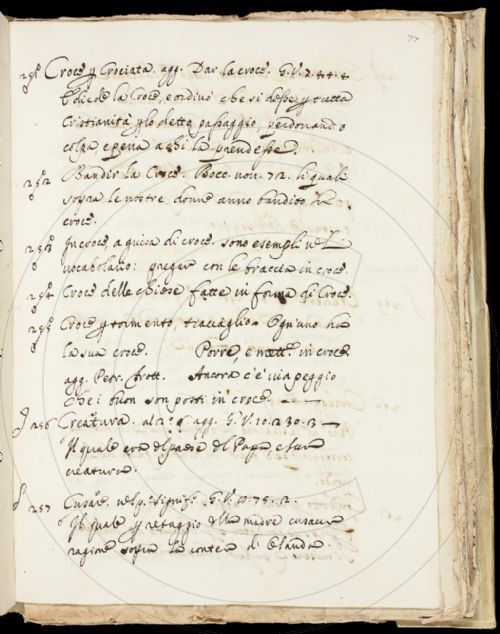 251 Croce p Crociata. agg. Dar la croce. G.V.7.44.4
E diede la Croce, e ordinò che si desse p tutta
Cristianità p lo detto passaggio, perdonando
colpa e pena a chi la prendesse.
252 Bandir la Croce. Bocc. nov. 72. li quali
sopra le nostre donne anno bandito la
croce.
253 In croce a guisa di croce. sono esempli nel
vocabolario: pregar con le braccia in croce.
254 Croce delle chiese fatte in forma di Croce.
255 Croce p tormento, travaglio. Ogn'uno ha
la sua croce. Porre, e mett. in croce.
agg. Petr. Ancora c'è via peggio
che i buon son posti in croce.
256 Creatura. al 2° § agg. G.V.10.230.3
Il quale era del paese del Papa, e sua
creatura.
257 Curare. nel p° signifi. G.V. 75. 2.
Il quale p retaggio della madre curava
ragione sopra la contea di Olanda.